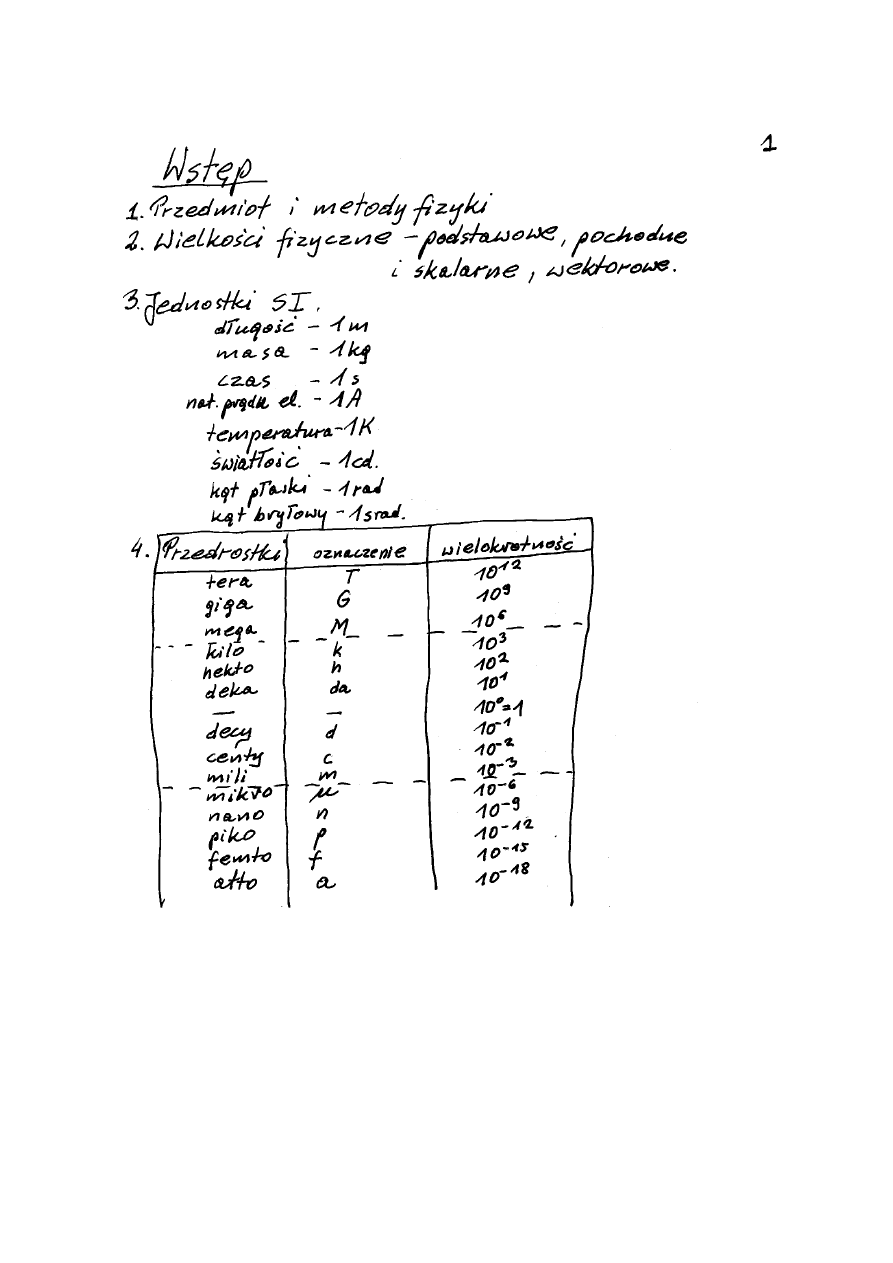 1
Wstęp
1. Przedmiot i metody fizyki
2. Wielkości fizyczne – podstawowe, pochodne
i skalarne, wektorowe.
3. Jednostki SI.
długość – 1m
masa – 1kg
czas – 1s
nat. prądu el. – 1A
temperatura – 1K
światłość – 1cd.
kąt płaski – 1rad
kąt bryłowy – 1srad.
4. Przedrostki oznaczenie wielokrotność
tera T 10¹²
giga G 10⁹
mega M 10⁶
kilo k 10³
hekto h 10²
deka da 10¹
— — 10⁰=1
decy d 10⁻¹
centy c 10⁻²
mili m 10⁻³
mikro μ 10⁻⁶
nano n 10⁻⁹
piko p 10⁻¹²
femto f 10⁻¹⁵
atto a 10⁻¹⁸